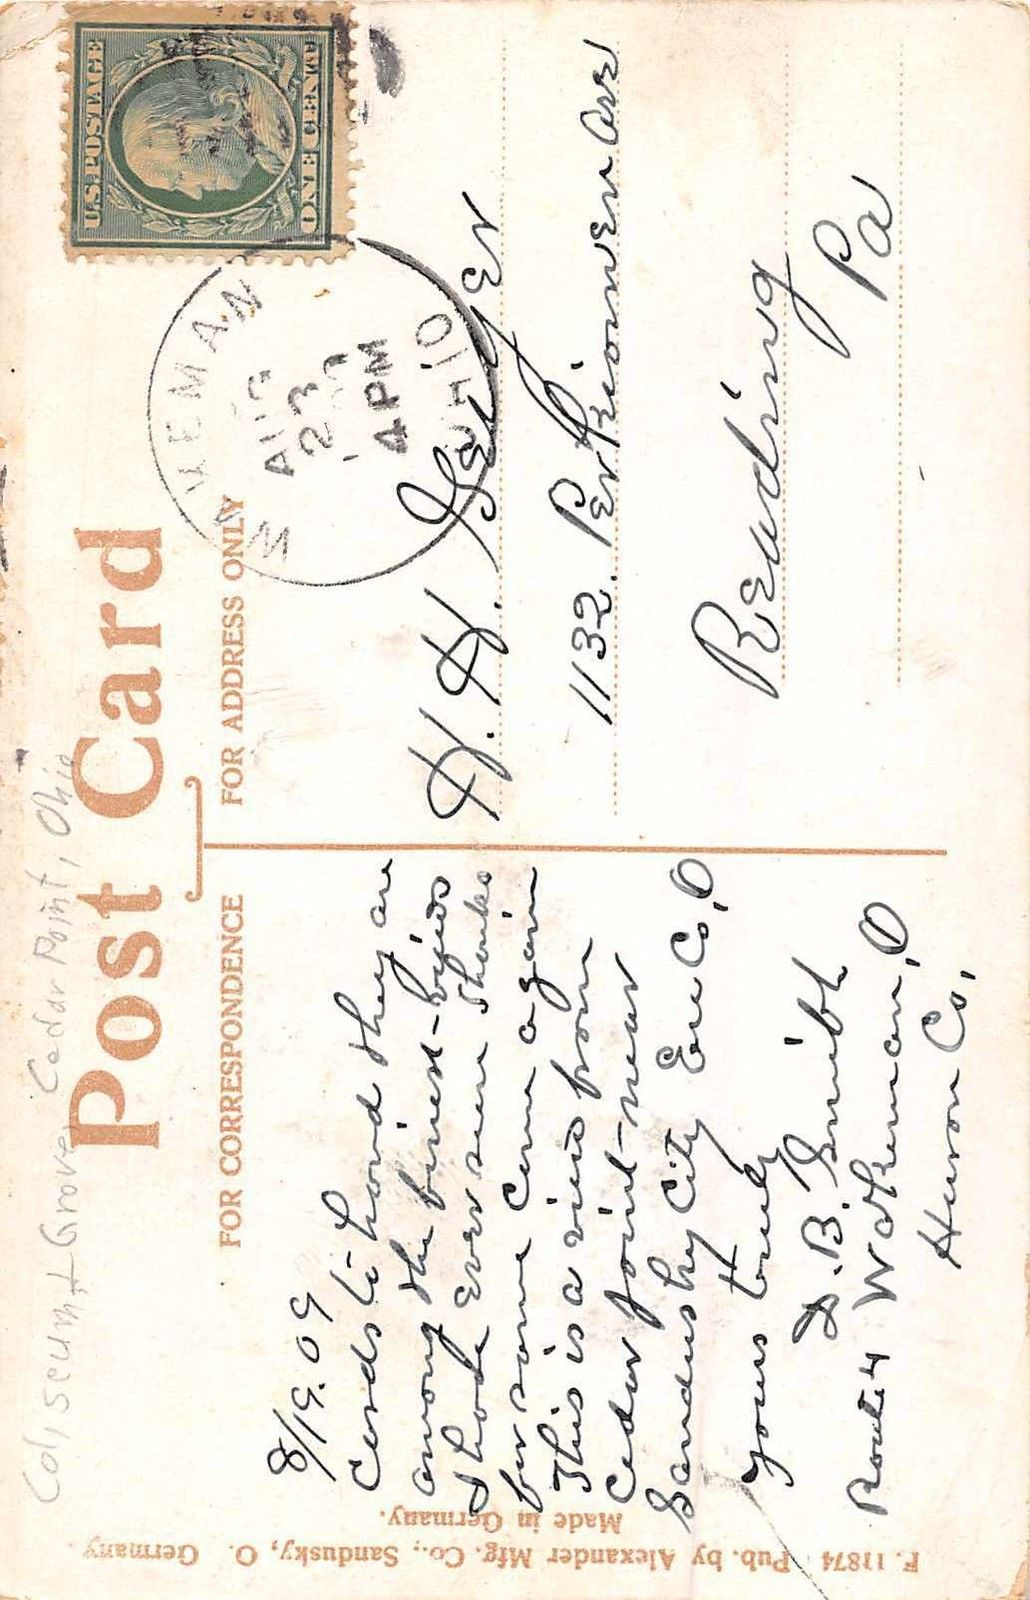 Coliseum + Grove, Cedar Point, Ohio
Post Card
FOR CORRESPONDENCE
FOR ADDRESS ONLY
U.S. POSTAGE
ONE CENT
WAKEMAN
AUG
23
4 PM
OHIO
8/19.09
Cards to hand they are
among the finest-
I have Ever seen Thanks
for same Come again
This is a view from
Cedar point-near
Sandusky City Erie Co, O
yours truly
D. B. Smith
Route 4 Wakeman, O
Huron Co,
H. H. Geiger
1132. Perkiomen Ave
Reading
Pa
F. 11874 Pub. by Alexander Mfg. Co., Sandusky, O. Germany.
Made in Germany.